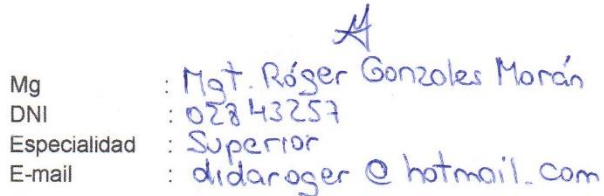 Mg : Mgt. Róger Gonzoles Morán
DNI : 02843257
Especialidad : Superior
E-mail : didaroger@hotmail.com